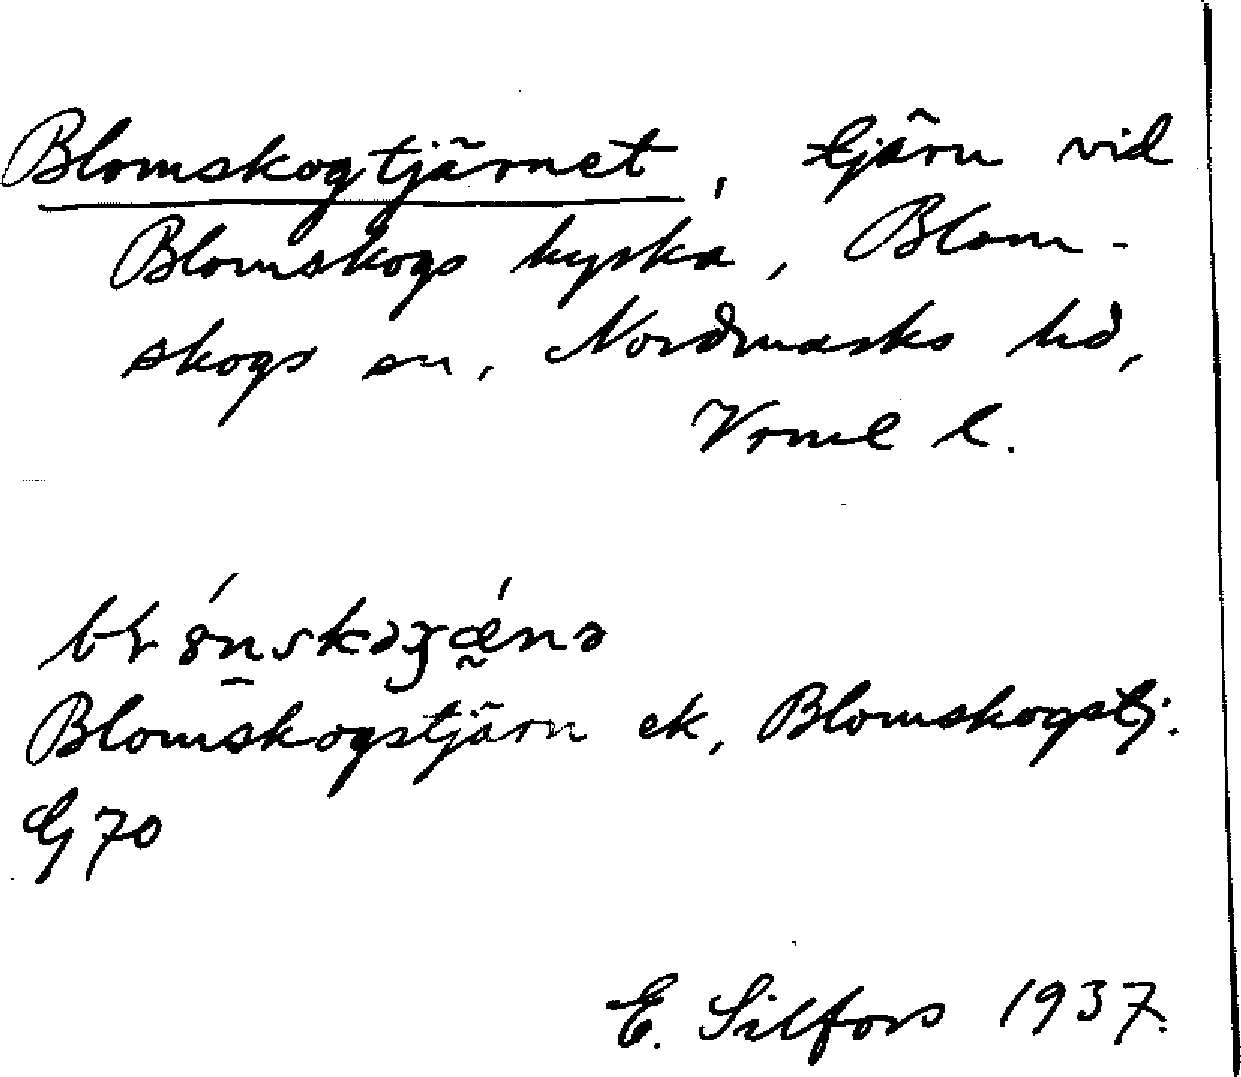 Blomskogtjärnet, tjärn vid
Blomskogs kyrka, Blom-
skogs sn, Nordmarks hd,
Vrml l.
Blomskogstjärn ek, Blomskogstj.
G 70
E. Silfors 1937.